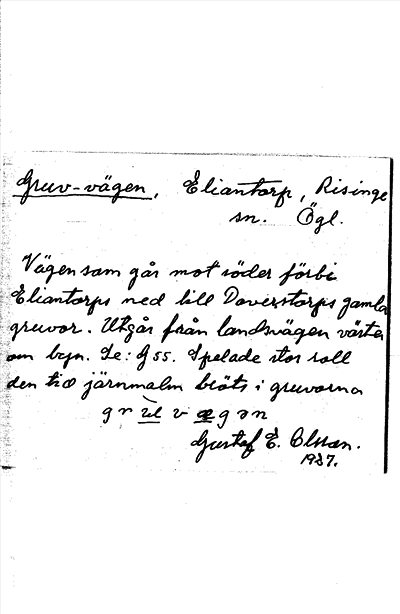 Gruv-vägen, Eliantorp, Risinge
sn. Ögl.
Vägen som går mot söder förbi
Eliantorps ned till Doverstorps gamla
gruvor. Utgår från landsvägen väster
om byn. Se: G 55. Spelade stor roll
den tid järnmalm bröts i gruvorna
Gustaf E. Olsson.
1937.